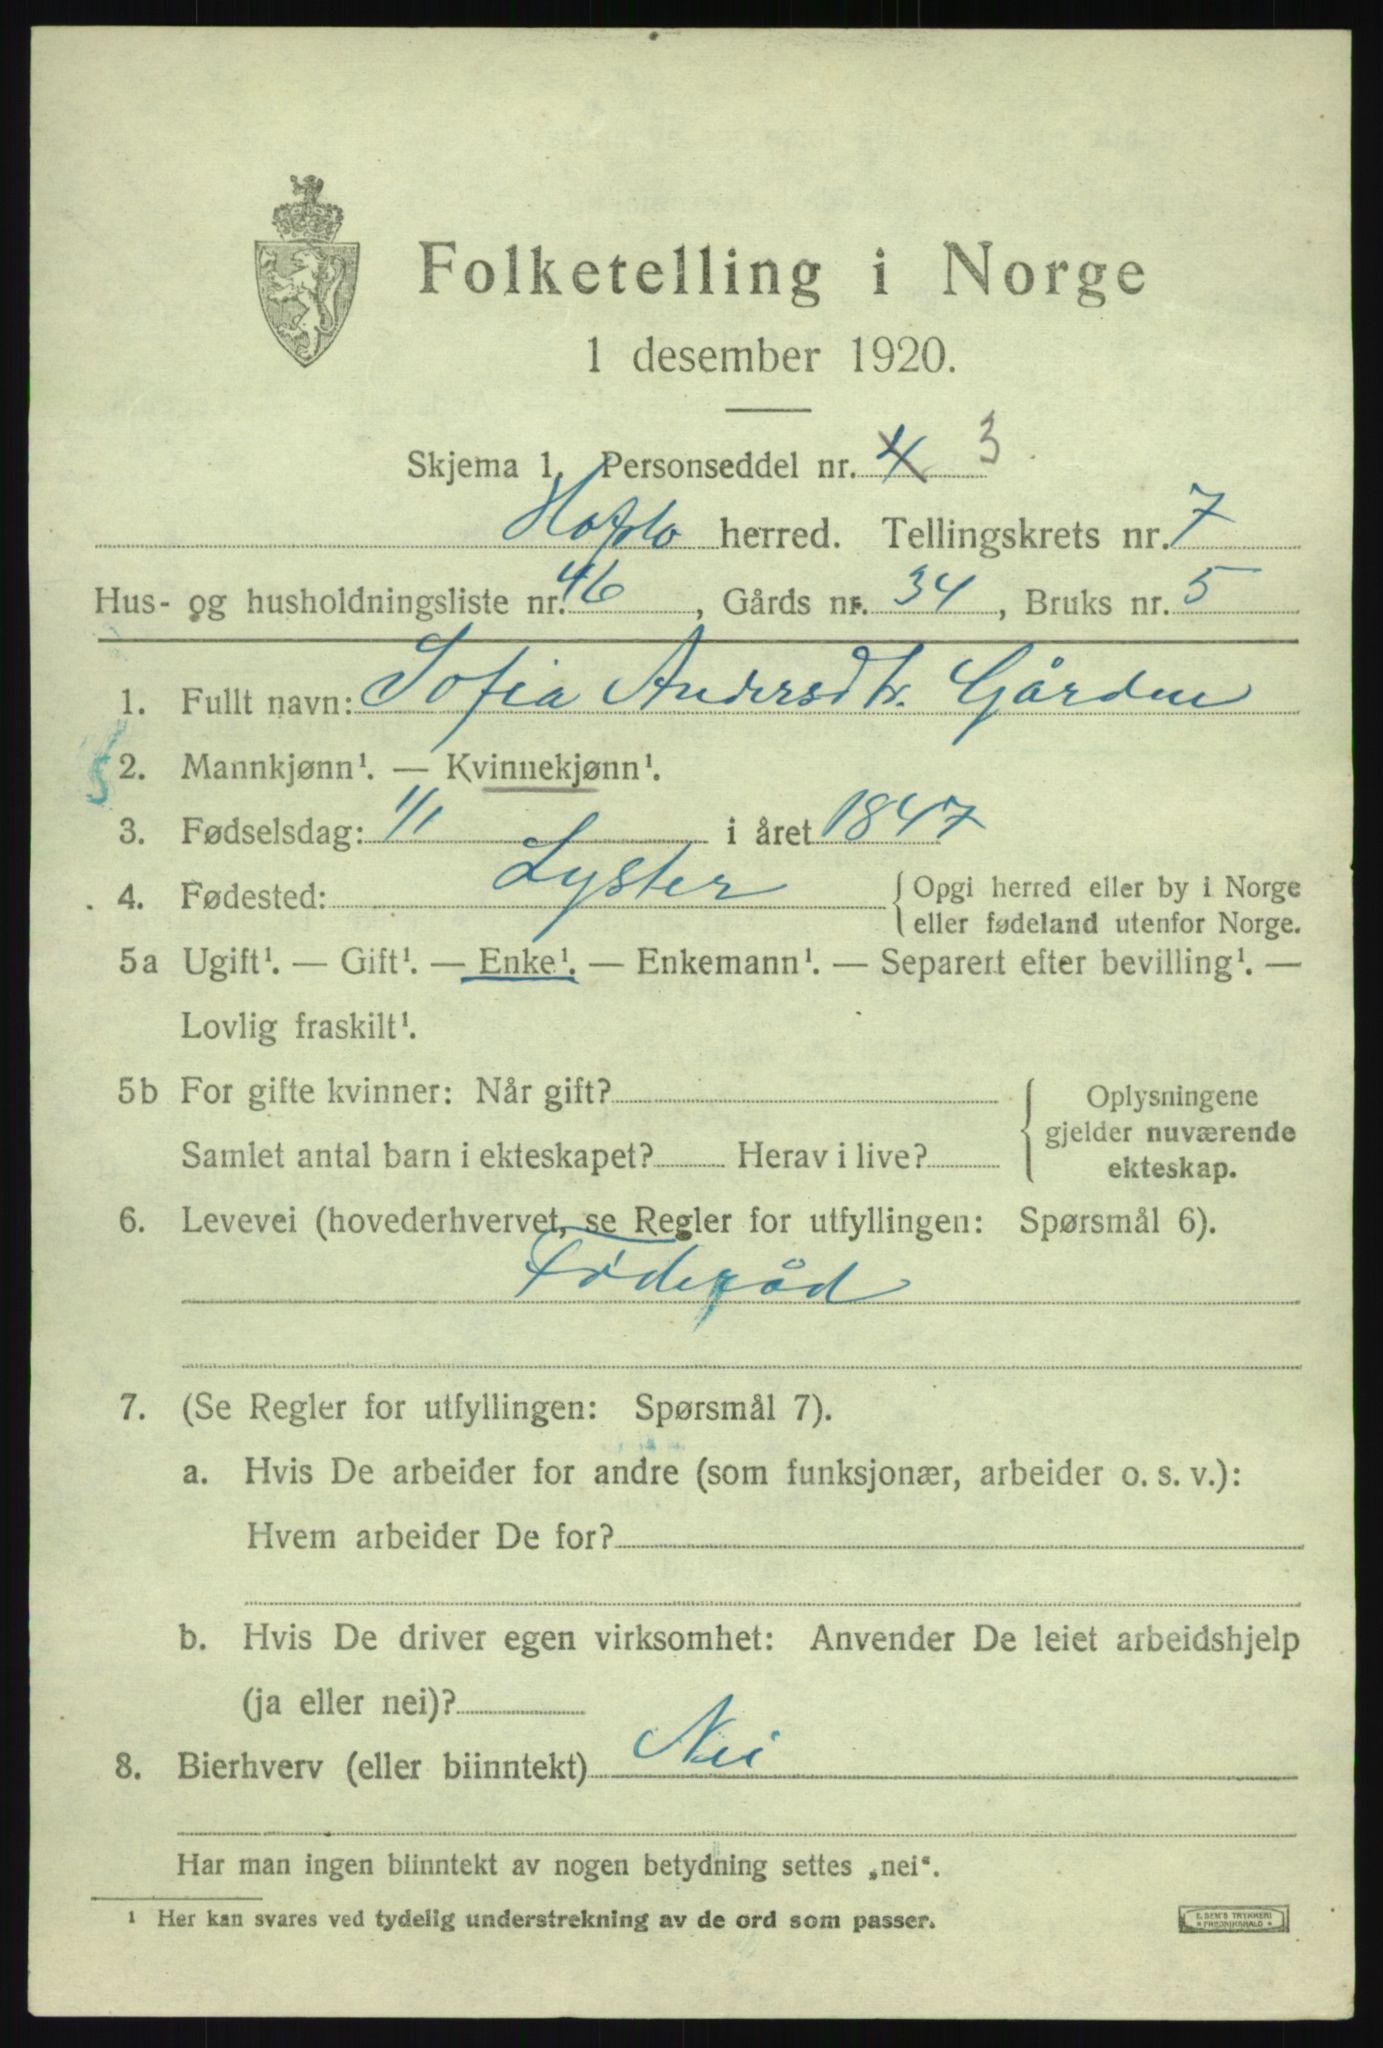 Folketelling i Norge
1 desember 1920.
Skjema 1. Personseddel nr. 4 3
Hafslo herred. Tellingskrets nr. 7
Hus- og husholdningsliste nr. 46, Gårds nr. 34, Bruks nr. 5
1. Fullt navn: Sofia Andersdtr. Gården
2. Mannkjønn¹. — Kvinnekjønn¹.
3. Fødselsdag: 1/1 i året 1847
4. Fødested: Lyster { Opgi herred eller by i Norge
eller fødeland utenfor Norge.
5a Ugift¹. — Gift¹. — Enke¹. — Enkemann¹. — Separert efter bevilling¹. —
Lovlig fraskilt¹.
5b For gifte kvinner: Når gift? { Oplysningene
gjelder nuværende
Samlet antal barn i ekteskapet? Herav i live? ekteskap.
6. Levevei (hovederhvervet, se Regler for utfyllingen: Spørsmål 6).
Føderåd
7. (Se Regler for utfyllingen: Spørsmål 7).
a. Hvis De arbeider for andre (som funksjonær, arbeider o. s. v.):
Hvem arbeider De for?
b. Hvis De driver egen virksomhet: Anvender De leiet arbeidshjelp
(ja eller nei)?
8. Bierhverv (eller biinntekt) Nei
Har man ingen biinntekt av nogen betydning settes „nei“.
¹ Her kan svares ved tydelig understrekning av de ord som passer.
E. SEM'S TRYKKERI
FREDRIKSHALD